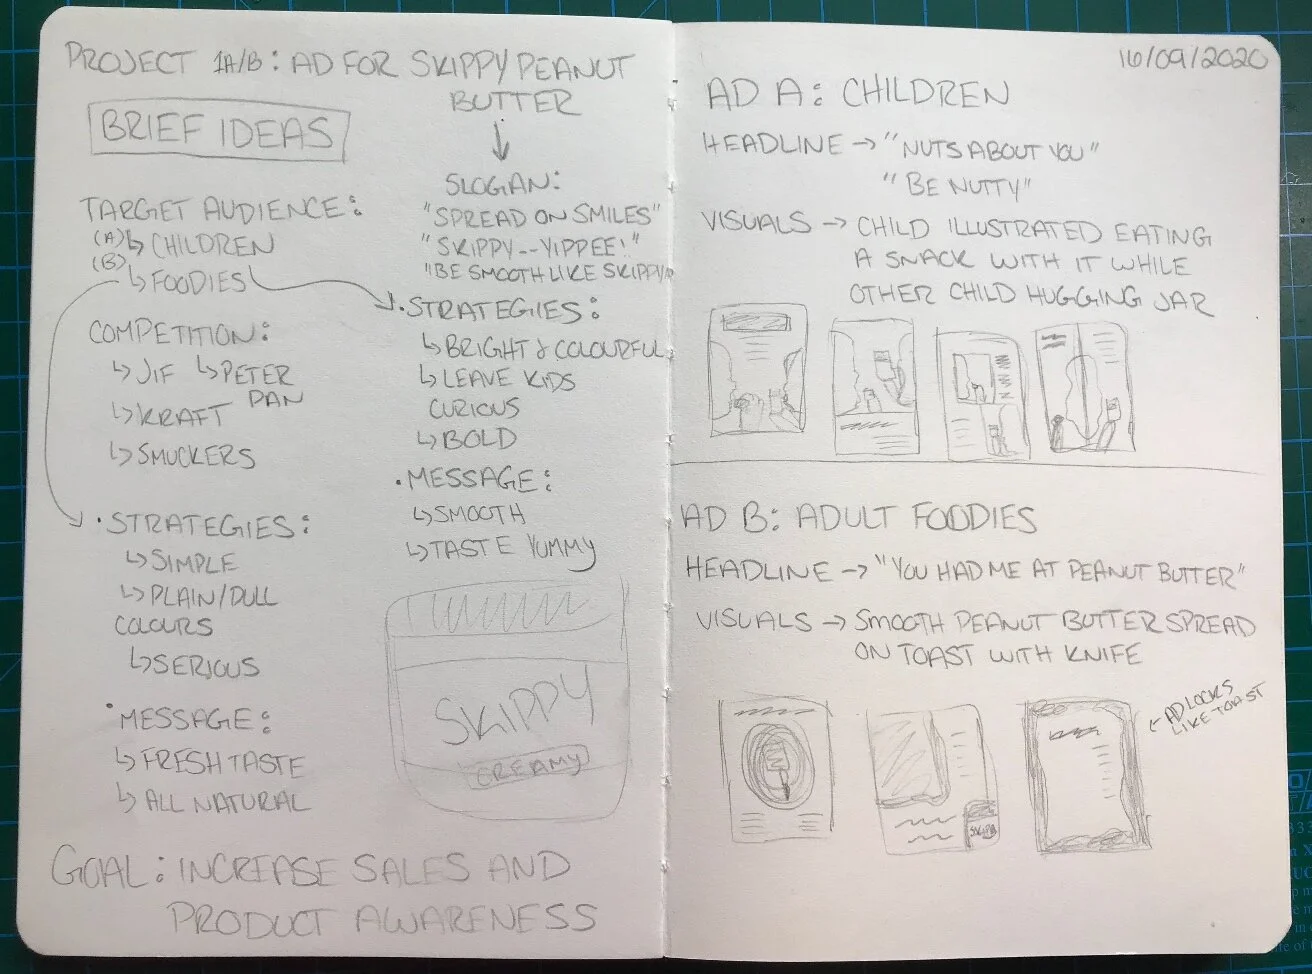 PROJECT 1A/B: AD FOR SKIPPY PEANUT
BUTTER
BRIEF IDEAS
TARGET AUDIENCE:
(A) ↳ CHILDREN
(B) ↳ FOODIES
COMPETITION:
↳ JIF ↳ PETER
PAN
↳ KRAFT
↳ SMUCKERS
• STRATEGIES:
↳ SIMPLE
↳ PLAIN/DULL
COLOURS
↳ SERIOUS
• MESSAGE:
↳ FRESH TASTE
↳ ALL NATURAL
SLOGAN:
"SPREAD ON SMILES"
"SKIPPY--YIPPEE!"
"BE SMOOTH LIKE SKIPPY"
• STRATEGIES:
↳ BRIGHT & COLOURFUL
↳ LEAVE KIDS
CURIOUS
↳ BOLD
• MESSAGE:
↳ SMOOTH
↳ TASTE YUMMY
SKIPPY
CREAMY
GOAL: INCREASE SALES AND
PRODUCT AWARENESS
16/09/2020
AD A: CHILDREN
HEADLINE → "NUTS ABOUT YOU"
"BE NUTTY"
VISUALS → CHILD ILLUSTRATED EATING
A SNACK WITH IT WHILE
OTHER CHILD HUGGING JAR
AD B: ADULT FOODIES
HEADLINE → "YOU HAD ME AT PEANUT BUTTER"
VISUALS → SMOOTH PEANUT BUTTER SPREAD
ON TOAST WITH KNIFE
SKIPPY
← AD LOOKS
LIKE TOAST